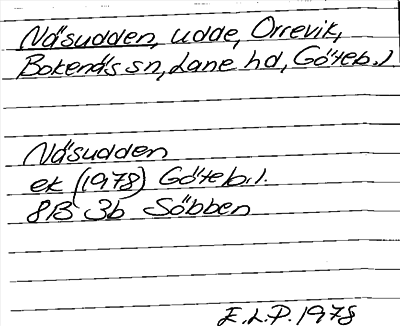 Näsudden, udde, Orrevik,
Bokenäs sn, Lane hd, Göteb. l
Näsudden
ek (1978) Göteb. l.
8B 3b Söbben
E.L.P. 1978